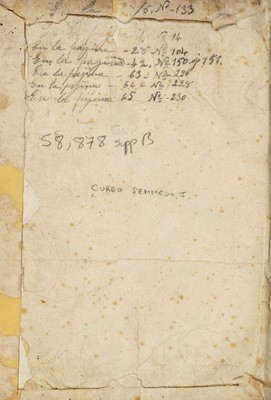 /5, Nº-133
Nº 14
En la pagina - 28 Nº 104
En la pagina - 42, Nº 150 y 151.
En la pagina - 63 - Nº 220
En la pagina - 64 - Nº 228
En la pagina 65 Nº - 230
58,878 Supp B
CURBO SEMMEDO, J.